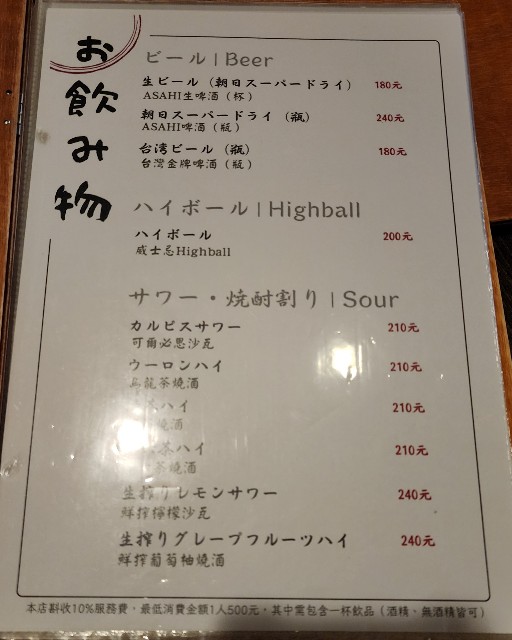 お飲み物
ビール | Beer
生ビール（朝日スーパードライ） 180元
ASAHI生啤酒（杯）
朝日スーパードライ（瓶） 240元
ASAHI啤酒（瓶）
台湾ビール（瓶） 180元
台灣金牌啤酒（瓶）
ハイボール | Highball
ハイボール 200元
威士忌Highball
サワー・焼酎割り | Sour
カルピスサワー 210元
可爾必思沙瓦
ウーロンハイ 210元
烏龍茶燒酒
ハイ 210元
燒酒
茶ハイ 210元
茶燒酒
生搾りレモンサワー 240元
鮮搾檸檬沙瓦
生搾りグレープフルーツハイ 240元
鮮搾葡萄柚燒酒
本店斟收10%服務費，最低消費金額1人500元，其中需包含一杯飲品（酒精、無酒精皆可）